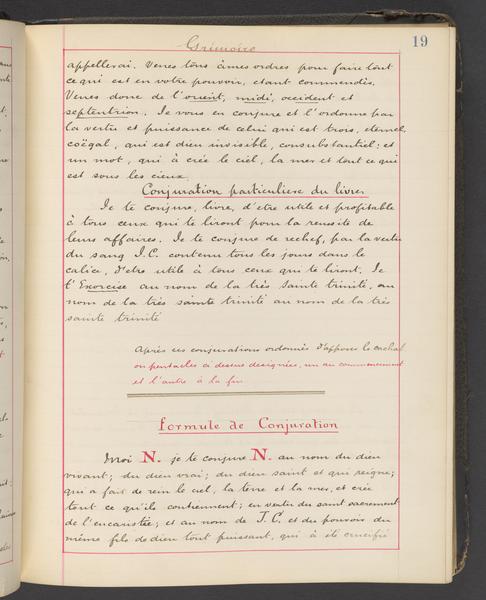 Grimoire
19
appellerai. Venes tous à mes ordres pour faire tout
ce qui est en votre pouvoir, etant commendés.
Venes donc de l'orient, midi, occident et
septentrion. Je vous en conjure et l'ordonne par
la vertu et puissance de celui qui est trois, eternel,
coëgal, qui est dieu invisible, consubstantiel; et
un mot, qui à crée le ciel, la mer et tout ce qui
est sous les cieux.
Conjuration particuliere du livre
Je te conjure, livre, d'etre utile et profitable
à tous ceux qui te liront pour la reussite de
leurs affaires. Je te conjure de rechef, par la vertu
du sang J.C. contenu tous les jours dans le
calice, d'etre utile à tous ceux qui te liront. Je
t'Exorcise au nom de la très sainte trinité, au
nom de la très sainte trinité au nom de la très
sainte trinité
Après ces conjurations ordonnés d'apposer le cachet
ou pentacles ci dessus designées, un au commencement
et l'autre à la fin
formule de Conjuration
Moi N. je te conjure N. au nom du dieu
vivant; du dieu vrai; du dieu saint et qui reigne;
qui a fait de rein le ciel, la terre et la mer, et crée
tout ce qu'ils contiennent; en vertu du saint sacrement
de l'eucaristie; et au nom de J.C. et du pouvoir du
même fils de dieu tout puissant, qui à été crucifié